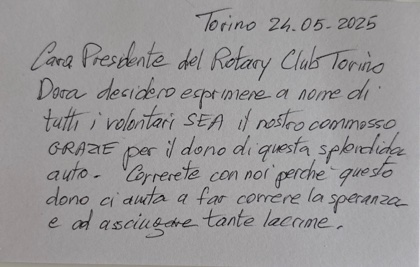 Torino 24.05-2025
Cara Presidente del Rotary Club Torino
Dora desidero esprimere a nome di
tutti i volontari SEA il nostro commosso
GRAZIE per il dono di questa splendida
auto - Correrete con noi perchè questo
dono ci aiuta a far correre la speranza
e ad asciugare tante lacrime.